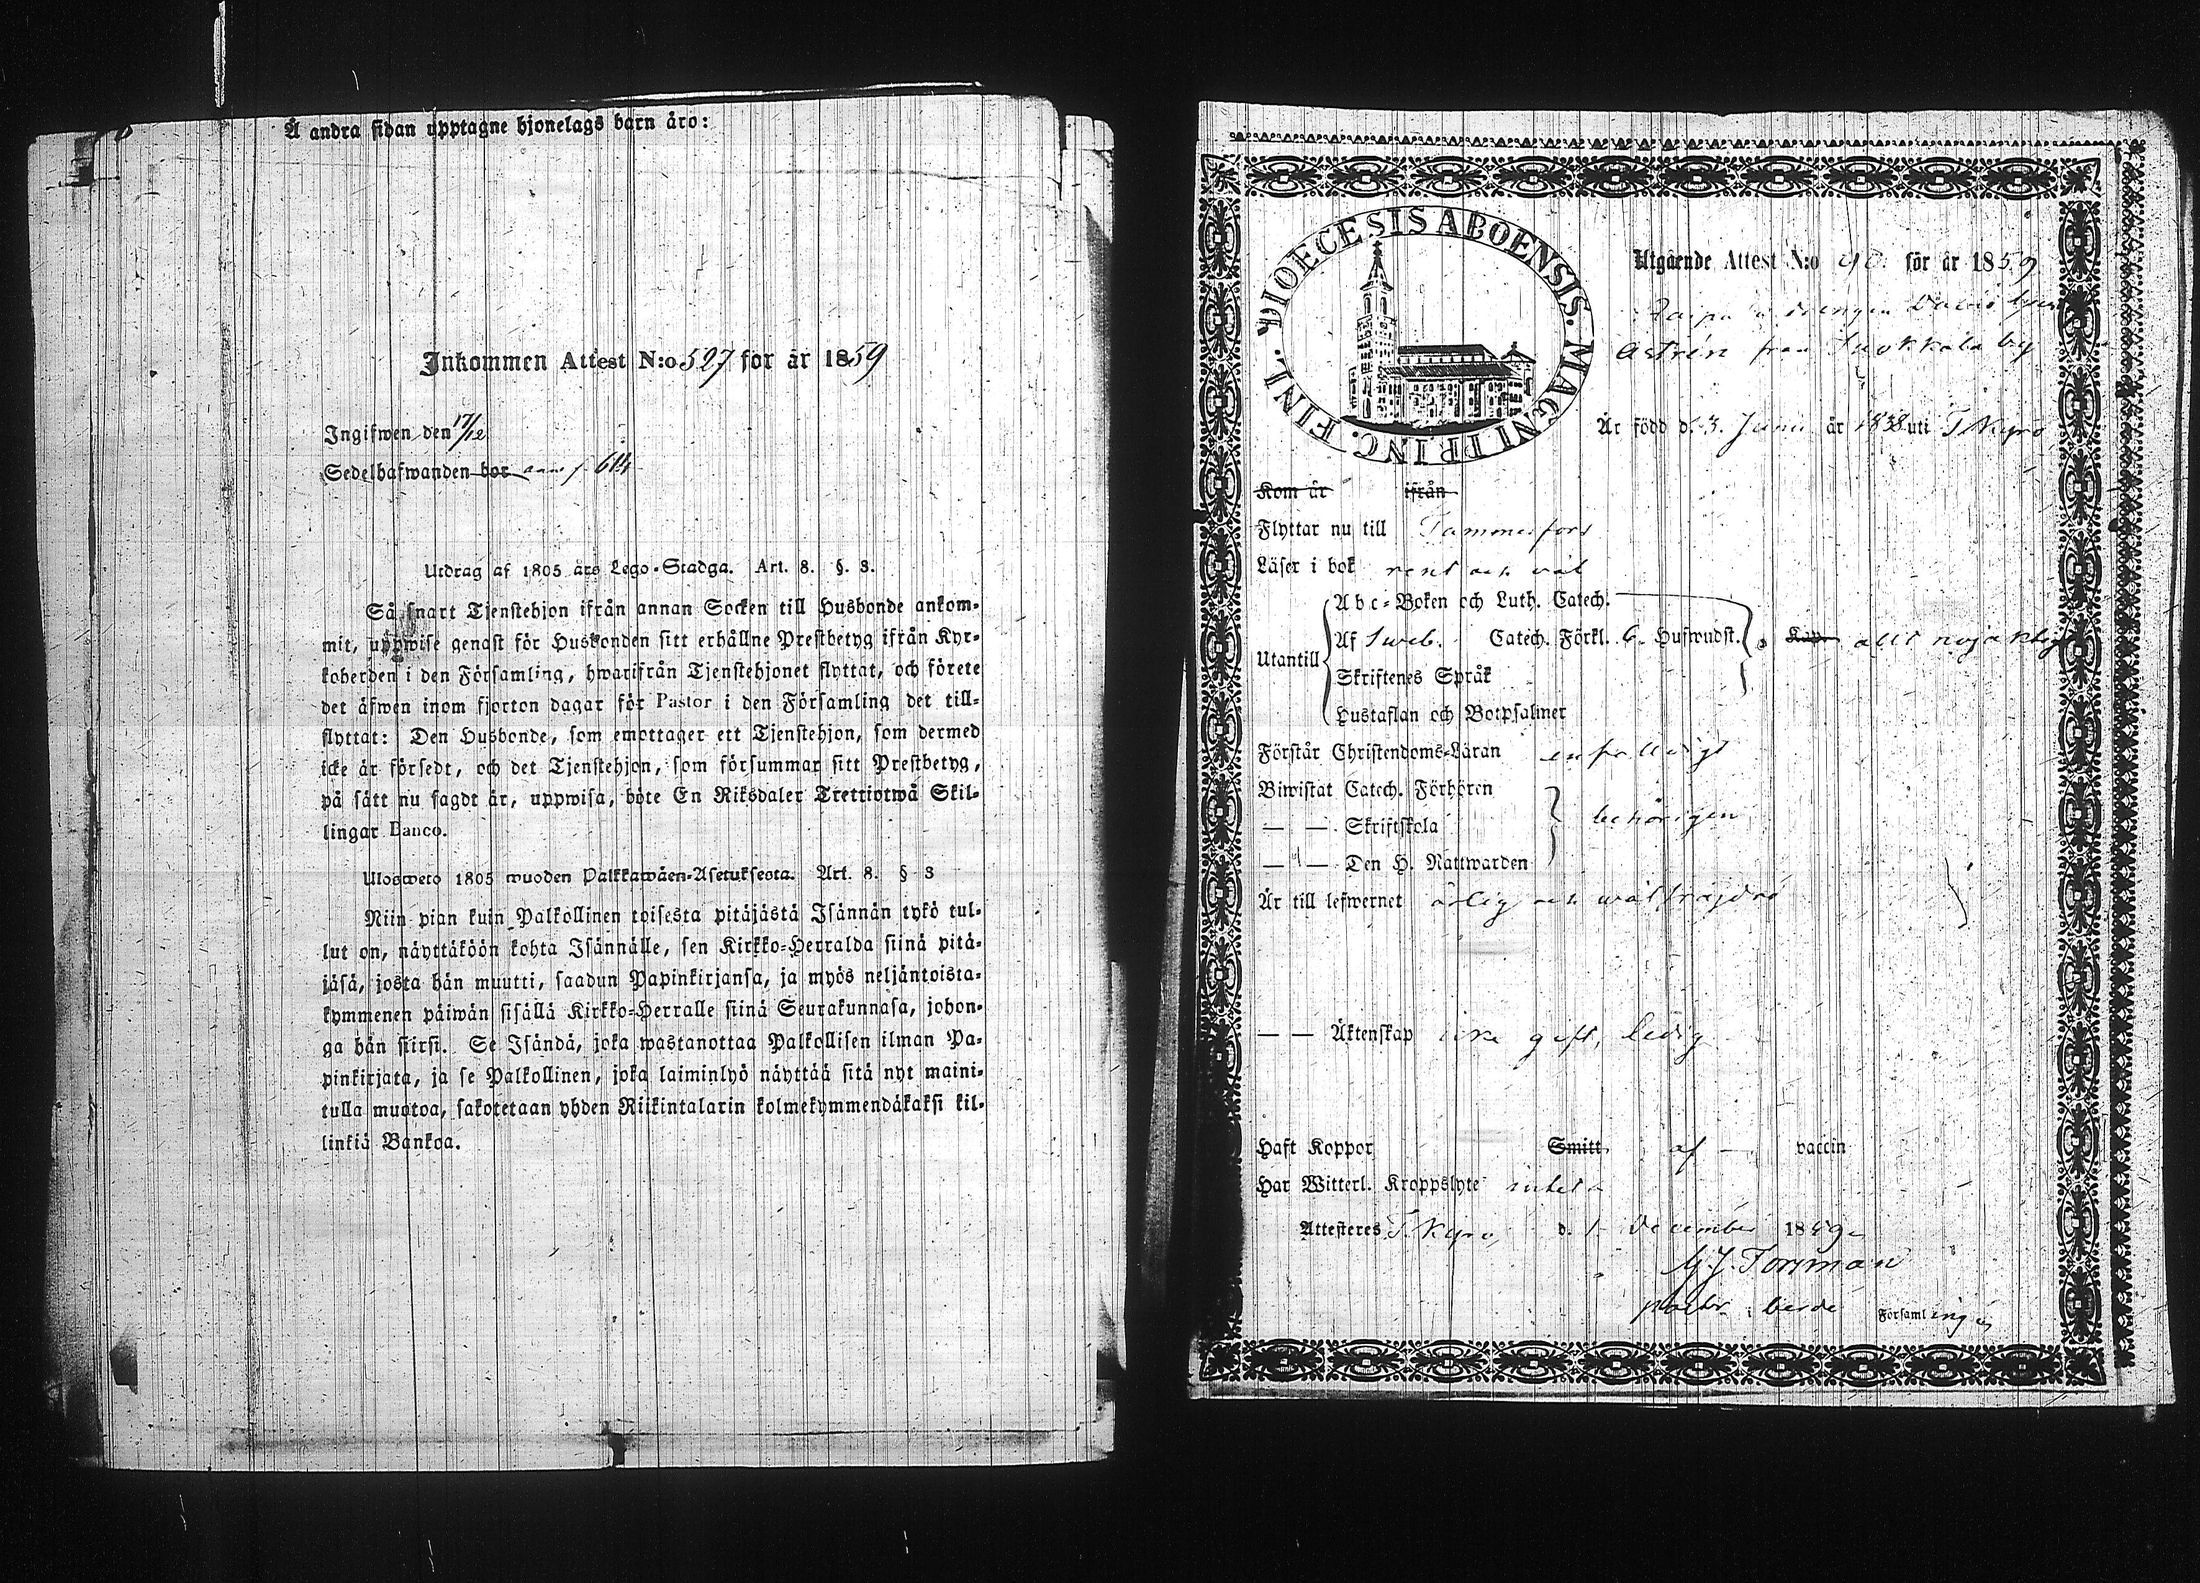 Å andra sidan upptagne hjonelags barn äro:
Inkommen Attest N:o 527 för år 1859
Ingifwen den 17/12
Sedelhafwanden bor
Utdrag af 1805 års Lego-Stadga. Art. 8. §. 3.
Så snart Tjenstehjon ifrån annan Socken till Husbonde ankom-
mit, uppwise genast för Husbonden sitt erhållne Prestbetyg ifrån Kyr-
koherden i den Församling, hwarifrån Tjenstehjonet flyttat, och förete
det äfwen inom fjorton dagar för Pastor i den Församling det till-
flyttat: Den Husbonde, som emottager ett Tjenstehjon, som dermed
icke är försedt, och det Tjenstehjon, som försummar sitt Prestbetyg,
på sätt nu sagdt är, uppwisa, böte En Riksdaler Trettiotwå Skil-
lingar Banco.
Ulosweto 1805 wuoden Palkkawäen-Asetuksesta. Art. 8. § 3
Niin pian kuin Palkollinen toisesta pitäjästä Isännän tykö tul-
lut on, näyttäköön kohta Isännälle, sen Kirkko-Herralda siinä pitä-
jäsä, josta hän muutti, saadun Papinkirjansa, ja myös neljäntoista-
kymmenen päiwän sisällä Kirkko-Herralle siinä Seurakunnasa, johon-
ga hän siirsi. Se Isändä, joka wastanottaa Palkollisen ilman Pa-
pinkirjata, ja se Palkollinen, joka laiminlyö näyttää sitä nyt maini-
tulla muotoa, sakotetaan yhden Riikintalarin kolmekymmendäkaksi kil-
linkiä Bankoa.
DIOECESIS ABOENSIS. MAGNI PRINC. FINL.
Utgående Attest N:o 40 för år 1859
drengen David
Astrén från Suokkala by
Är född d. 3 Junii år 1838 uti T Kyro
Kom år ifrån
Flyttar nu till Tammerfors
Läser i bok rent och wäl
Utantill
Abc-Boken och Luth. Catech.
Af Sweb. Catech. Förkl. 6. Hufwudst. Kap. allt nöjaktigt
Skriftenes Språk
Hustaflan och Botpsalmer
Förstår Christendoms-Läran enfalldigt
Biwistat Catech. Förhören
— — Skriftskola behörigen
— — Den H. Nattwarden
Är till lefwernet ärlig och wälfräjdad
— — Äktenskap icke gift, ledig
Haft Koppor Smitt af — vaccin
Har Witterl. Kroppslyte intet
Attesteres T. Kyro, d. 1 December 1859
G. J. Forsman
Församlingen